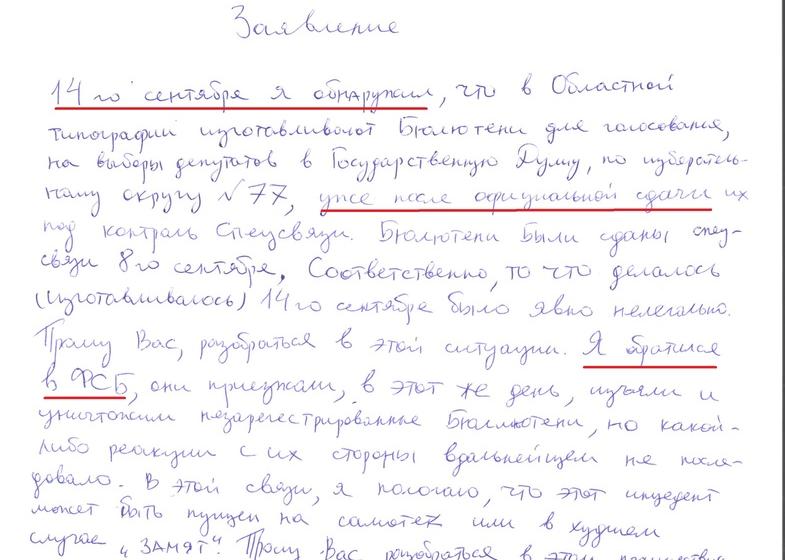 Заявление
14го сентября я обнаружил, что в Областной
типографии изготавливают Бюлютени для голосования,
на выборы депутатов в Государственную Думу, по избератель-
ному округу №77, уже после официальной сдачи их
под контроль Спецсвязи. Бюлютени были сданы спец-
связи 8го сентября, Соответственно, то что делалось
(изготавливалось) 14го сентября было явно нелегально.
Прошу Вас, разобраться в этой ситуации. Я обратился
в ФСБ, они приезжали, в этот же день, изъяли и
уничтожили незарегестрированные Бюллютени, но какой-
либо реакции с их стороны вдальнейшем не после-
довало. В этой связи, я пологаю, что этот инцедент
может быть пущен на самотек или в худшем
случае "ЗАМЯТ". Прошу Вас разобраться в этом